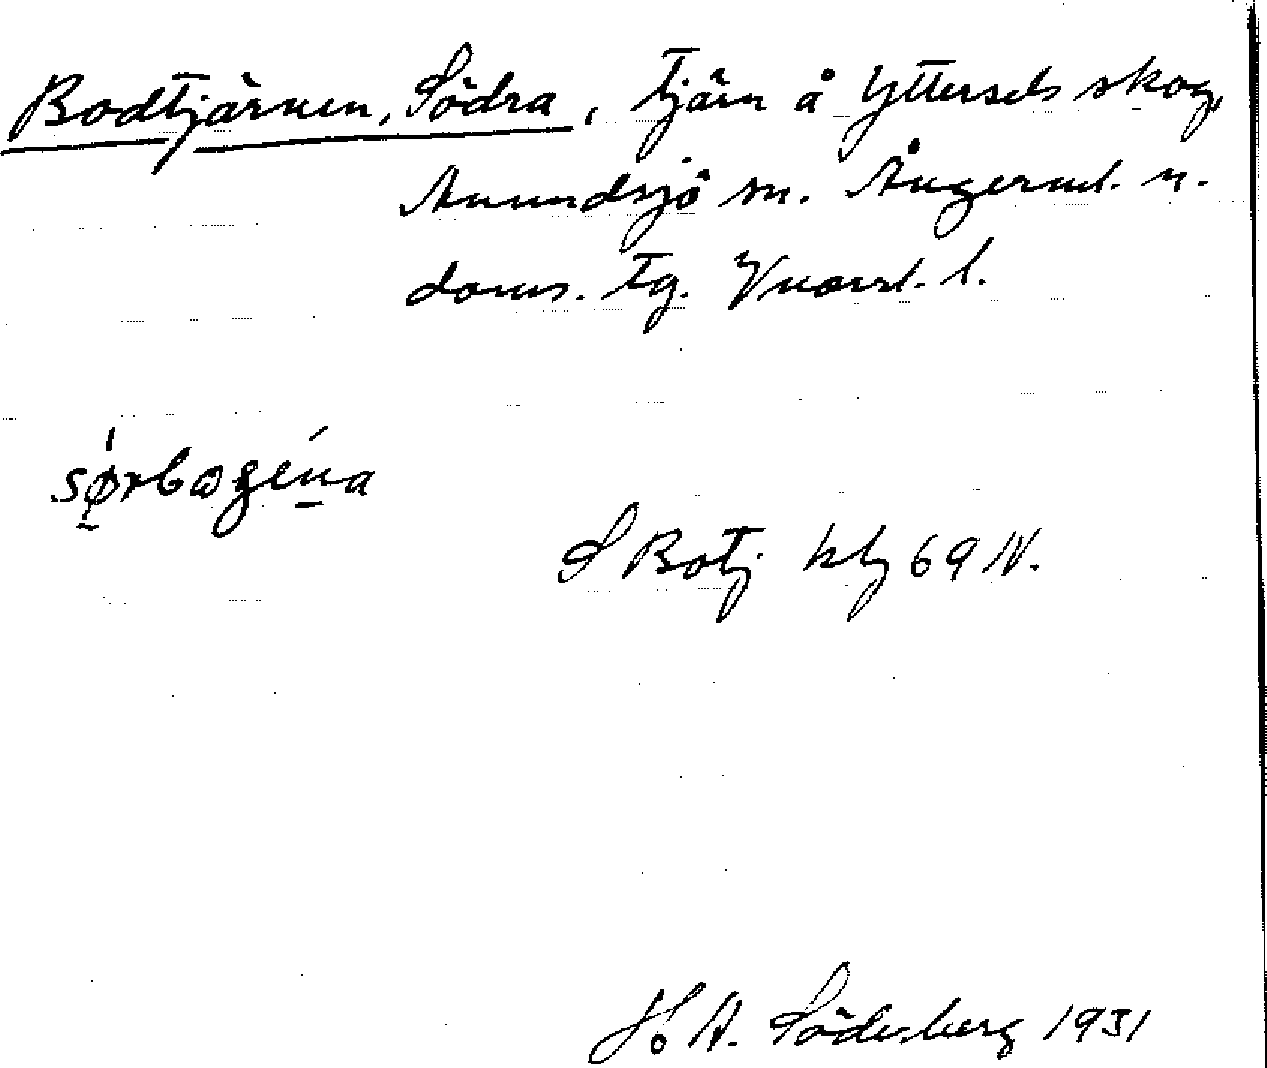 Bodtjärnen, Södra, tjärn å Yttersels skog,
Anundsjö sn. Ångerml. n.
doms. tg. Vnorrl. l.
S Botj kbl 69 N.
H. A. Söderberg 1931